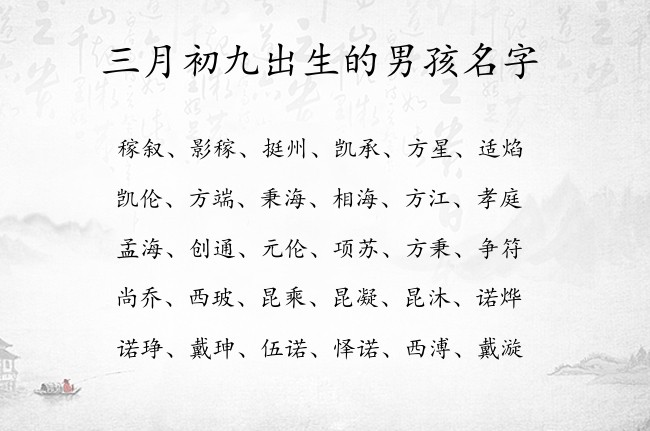 三月初九出生的男孩名字
稼叙、影稼、挺州、凯承、方星、适焰
凯伦、方端、秉海、相海、方江、孝庭
孟海、创通、元伦、项苏、方秉、争符
尚乔、西玻、昆乘、昆凝、昆沐、诺烨
诺琤、戴珅、伍诺、怿诺、西溥、戴漩